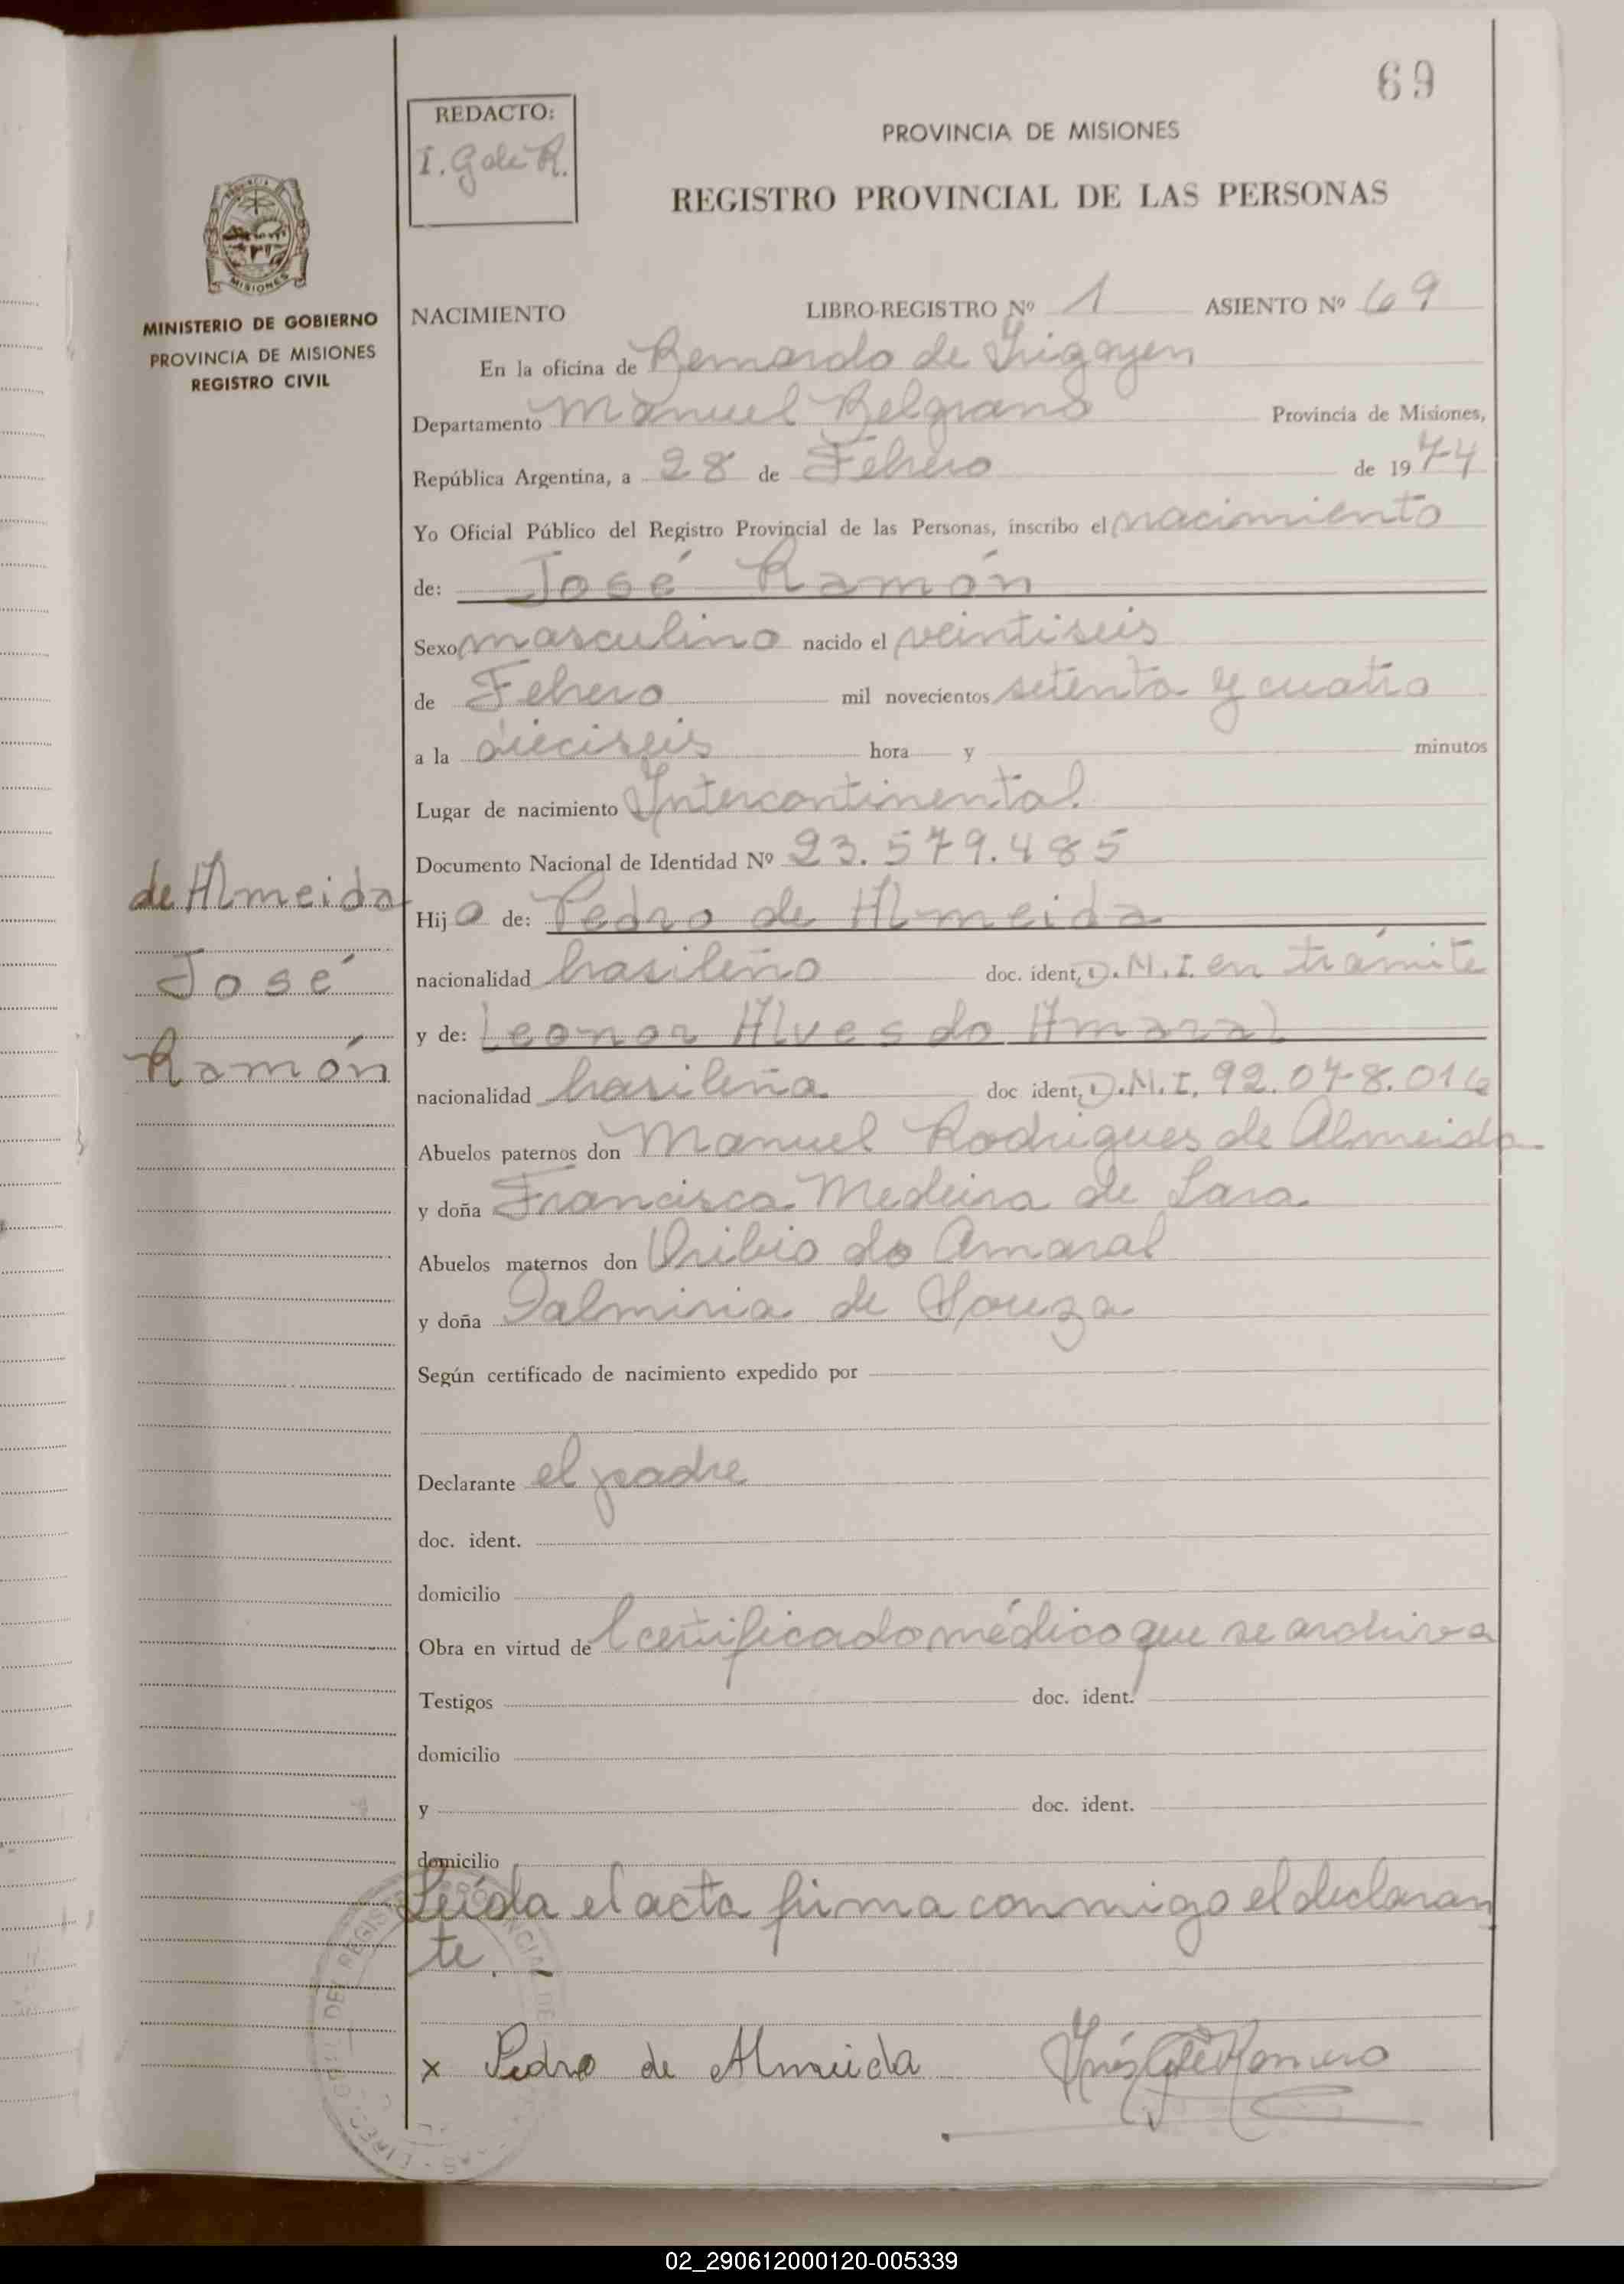 69
REDACTO:
I. Gole R.
PROVINCIA DE MISIONES
REGISTRO PROVINCIAL DE LAS PERSONAS
MISIONES
MINISTERIO DE GOBIERNO
PROVINCIA DE MISIONES
REGISTRO CIVIL
NACIMIENTO LIBRO-REGISTRO Nº 1 ASIENTO Nº 69
En la oficina de Bernardo de Irigoyen
Departamento Manuel Belgrano Provincia de Misiones,
República Argentina, a 28 de Febrero de 1974
Yo Oficial Público del Registro Provincial de las Personas, inscribo el nacimiento
de: José Ramón
Sexo masculino nacido el veintiseis
de Febrero mil novecientos setenta y cuatro
a la dieciseis hora y minutos
Lugar de nacimiento Intercontinental
Documento Nacional de Identidad Nº 23.579.485
de Almeida
José
Ramón
Hijo de: Pedro de Almeida
nacionalidad brasileño doc. ident. D.N.I. en trámite
y de: Leonor Alves do Amaral
nacionalidad brasileña doc ident. D.N.I. 92.078.016
Abuelos paternos don Manuel Rodrigues de Almeida
y doña Francisca Medeira de Lara
Abuelos maternos don do Amaral
y doña de Souza
Según certificado de nacimiento expedido por
Declarante el padre
doc. ident.
domicilio
Obra en virtud del certificado médico que se archiva
Testigos doc. ident.
domicilio
y doc. ident.
domicilio
Leída el acta firma conmigo el declaran
te. -
x Pedro de Almeida
02_290612000120-005339